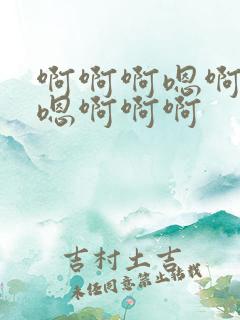 啊啊啊嗯啊
嗯啊啊啊
吉村土吉
未经同意禁止转载